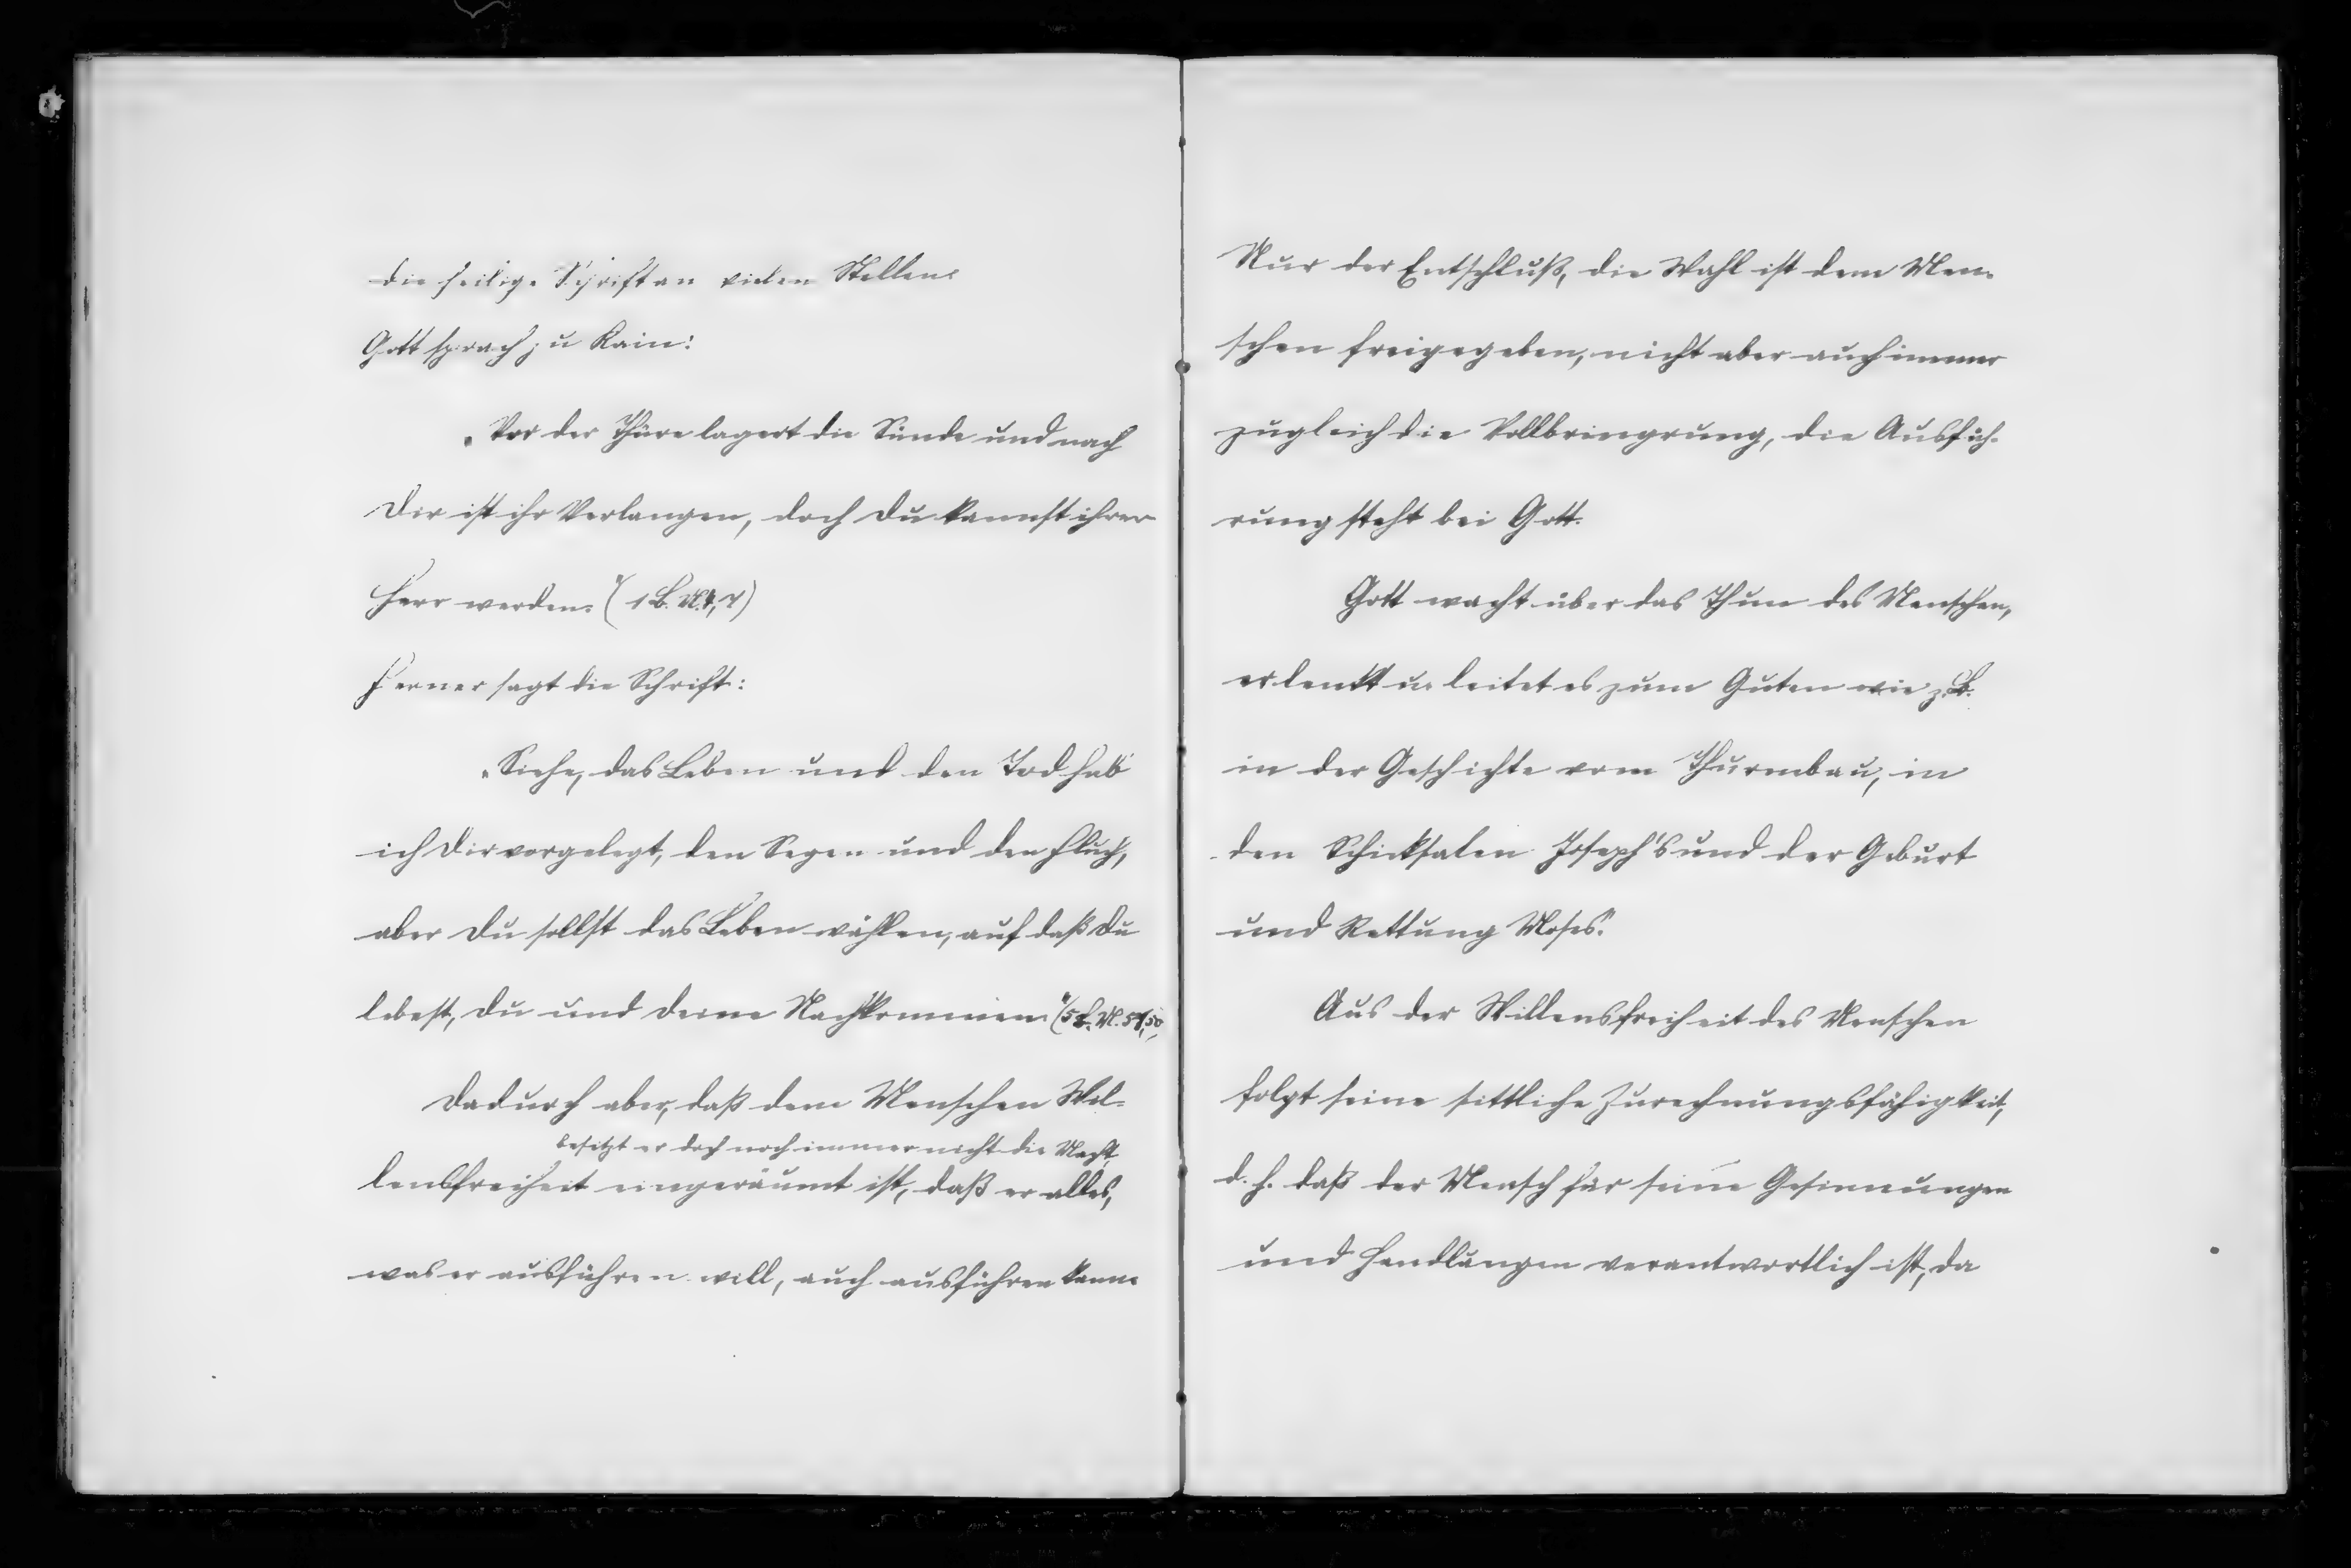 die heilige Schrift an vielen Stellen.
Gott sprach zu Kain:
„Vor der Thüre lagert die Sünde und nach
Dir ist ihr Verlangen, doch Du kannst ihrer
Herr werden.“ (1 B. M. 4, 7)
Ferner sagt die Schrift:
„Siehe, das Leben und den Tod hab'
ich Dir vorgelegt, den Segen und den Fluch,
aber Du sollst das Leben wählen, auf daß Du
lebest, Du und Deine Nachkommen.“ (5 B. M.
Dadurch aber, daß dem Menschen Wil-
besitzt er doch noch immer nicht die Macht,
lensfreiheit eingeräumt ist, daß er alles,
was er ausführen will, auch ausführen kann.
Nur der Entschluß, die Wahl ist dem Men-
schen freigegeben, nicht aber auch immer
zugleich die Vollbringung, die Ausfüh-
rung steht bei Gott.
Gott wacht über das Thun des Menschen,
er lenkt u. leitet es zum Guten wie z. B.
in der Geschichte vom Thurmbau, in
den Schicksalen Joseph's und der Geburt
und Rettung Moses'.
Aus der Willensfreiheit des Menschen
folgt seine sittliche Zurechnungsfähigkeit,
d. h. daß der Mensch für seine Gesinnungen
und Handlungen verantwortlich ist, da